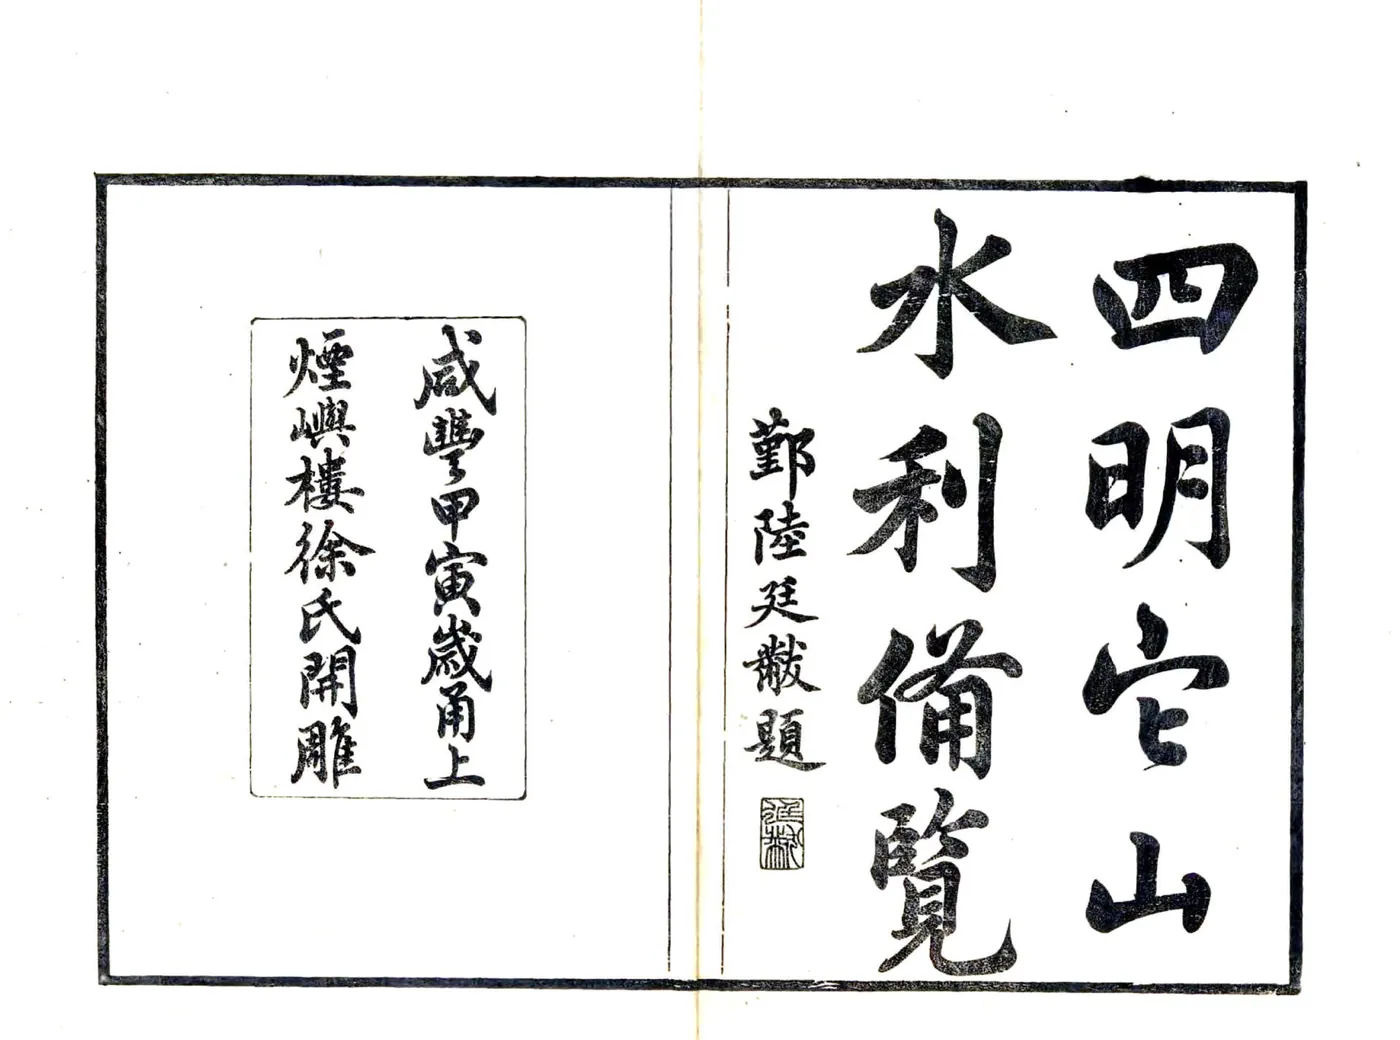 四明它山
水利備覽
鄞陸廷黻題
咸豐甲寅歲甬上
煙嶼樓徐氏開雕